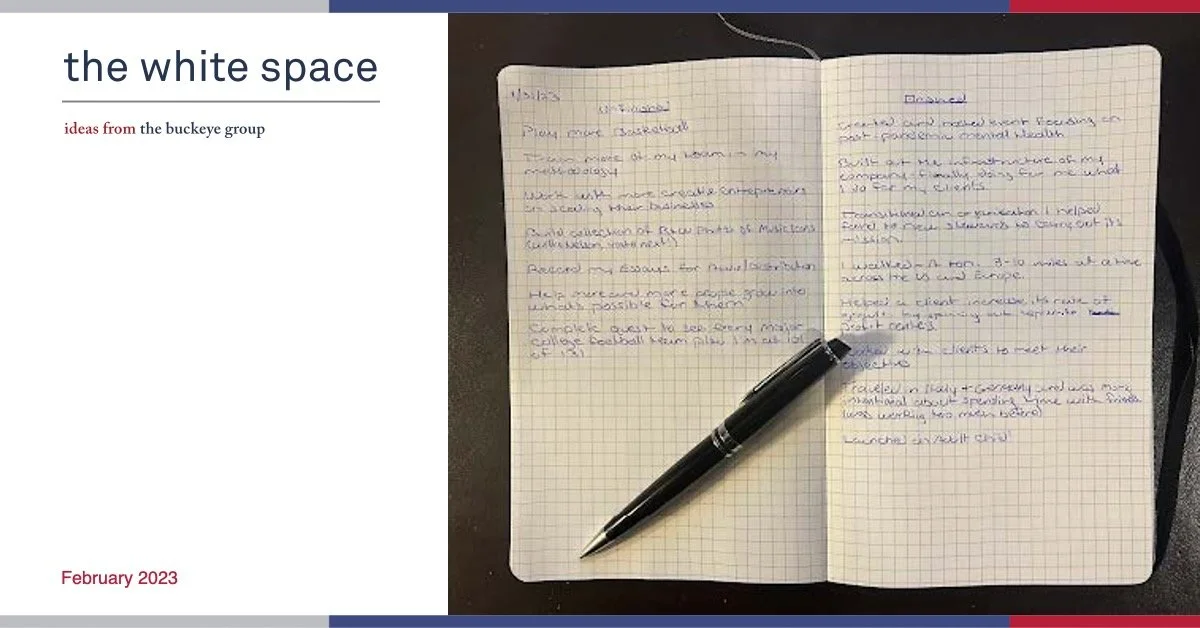 the white space
ideas from the buckeye group
February 2023
1/31/23
Unfinished
Play more Basketball
more of my team in my
methodology
Work with more creative entrepreneurs
on scaling their businesses
Build collection of B&W photos of Musicians
(Willie Nelson, you're next!)
Record my Essays for Audio Distribution
Help more and more people grow into
what's possible for them
Complete quest to see every major
college football team play. I'm at 121
of 131
Finished
Created and hosted event focusing on
post-pandemic mental health
Built out the infrastructure of my
company - finally doing for me what
I do for my clients
Transitioned an organization I helped
found to new stewards to carry out its
mission
I walked - A ton. 8-10 miles at a time
across the US and Europe.
Helped a client increase its rate of
growth by spinning out separate
profit centers
Worked with clients to meet their
objectives
Traveled in Italy + Germany and was more
intentional about spending time with friends
(was working too much before)
Launched an Adult Child!